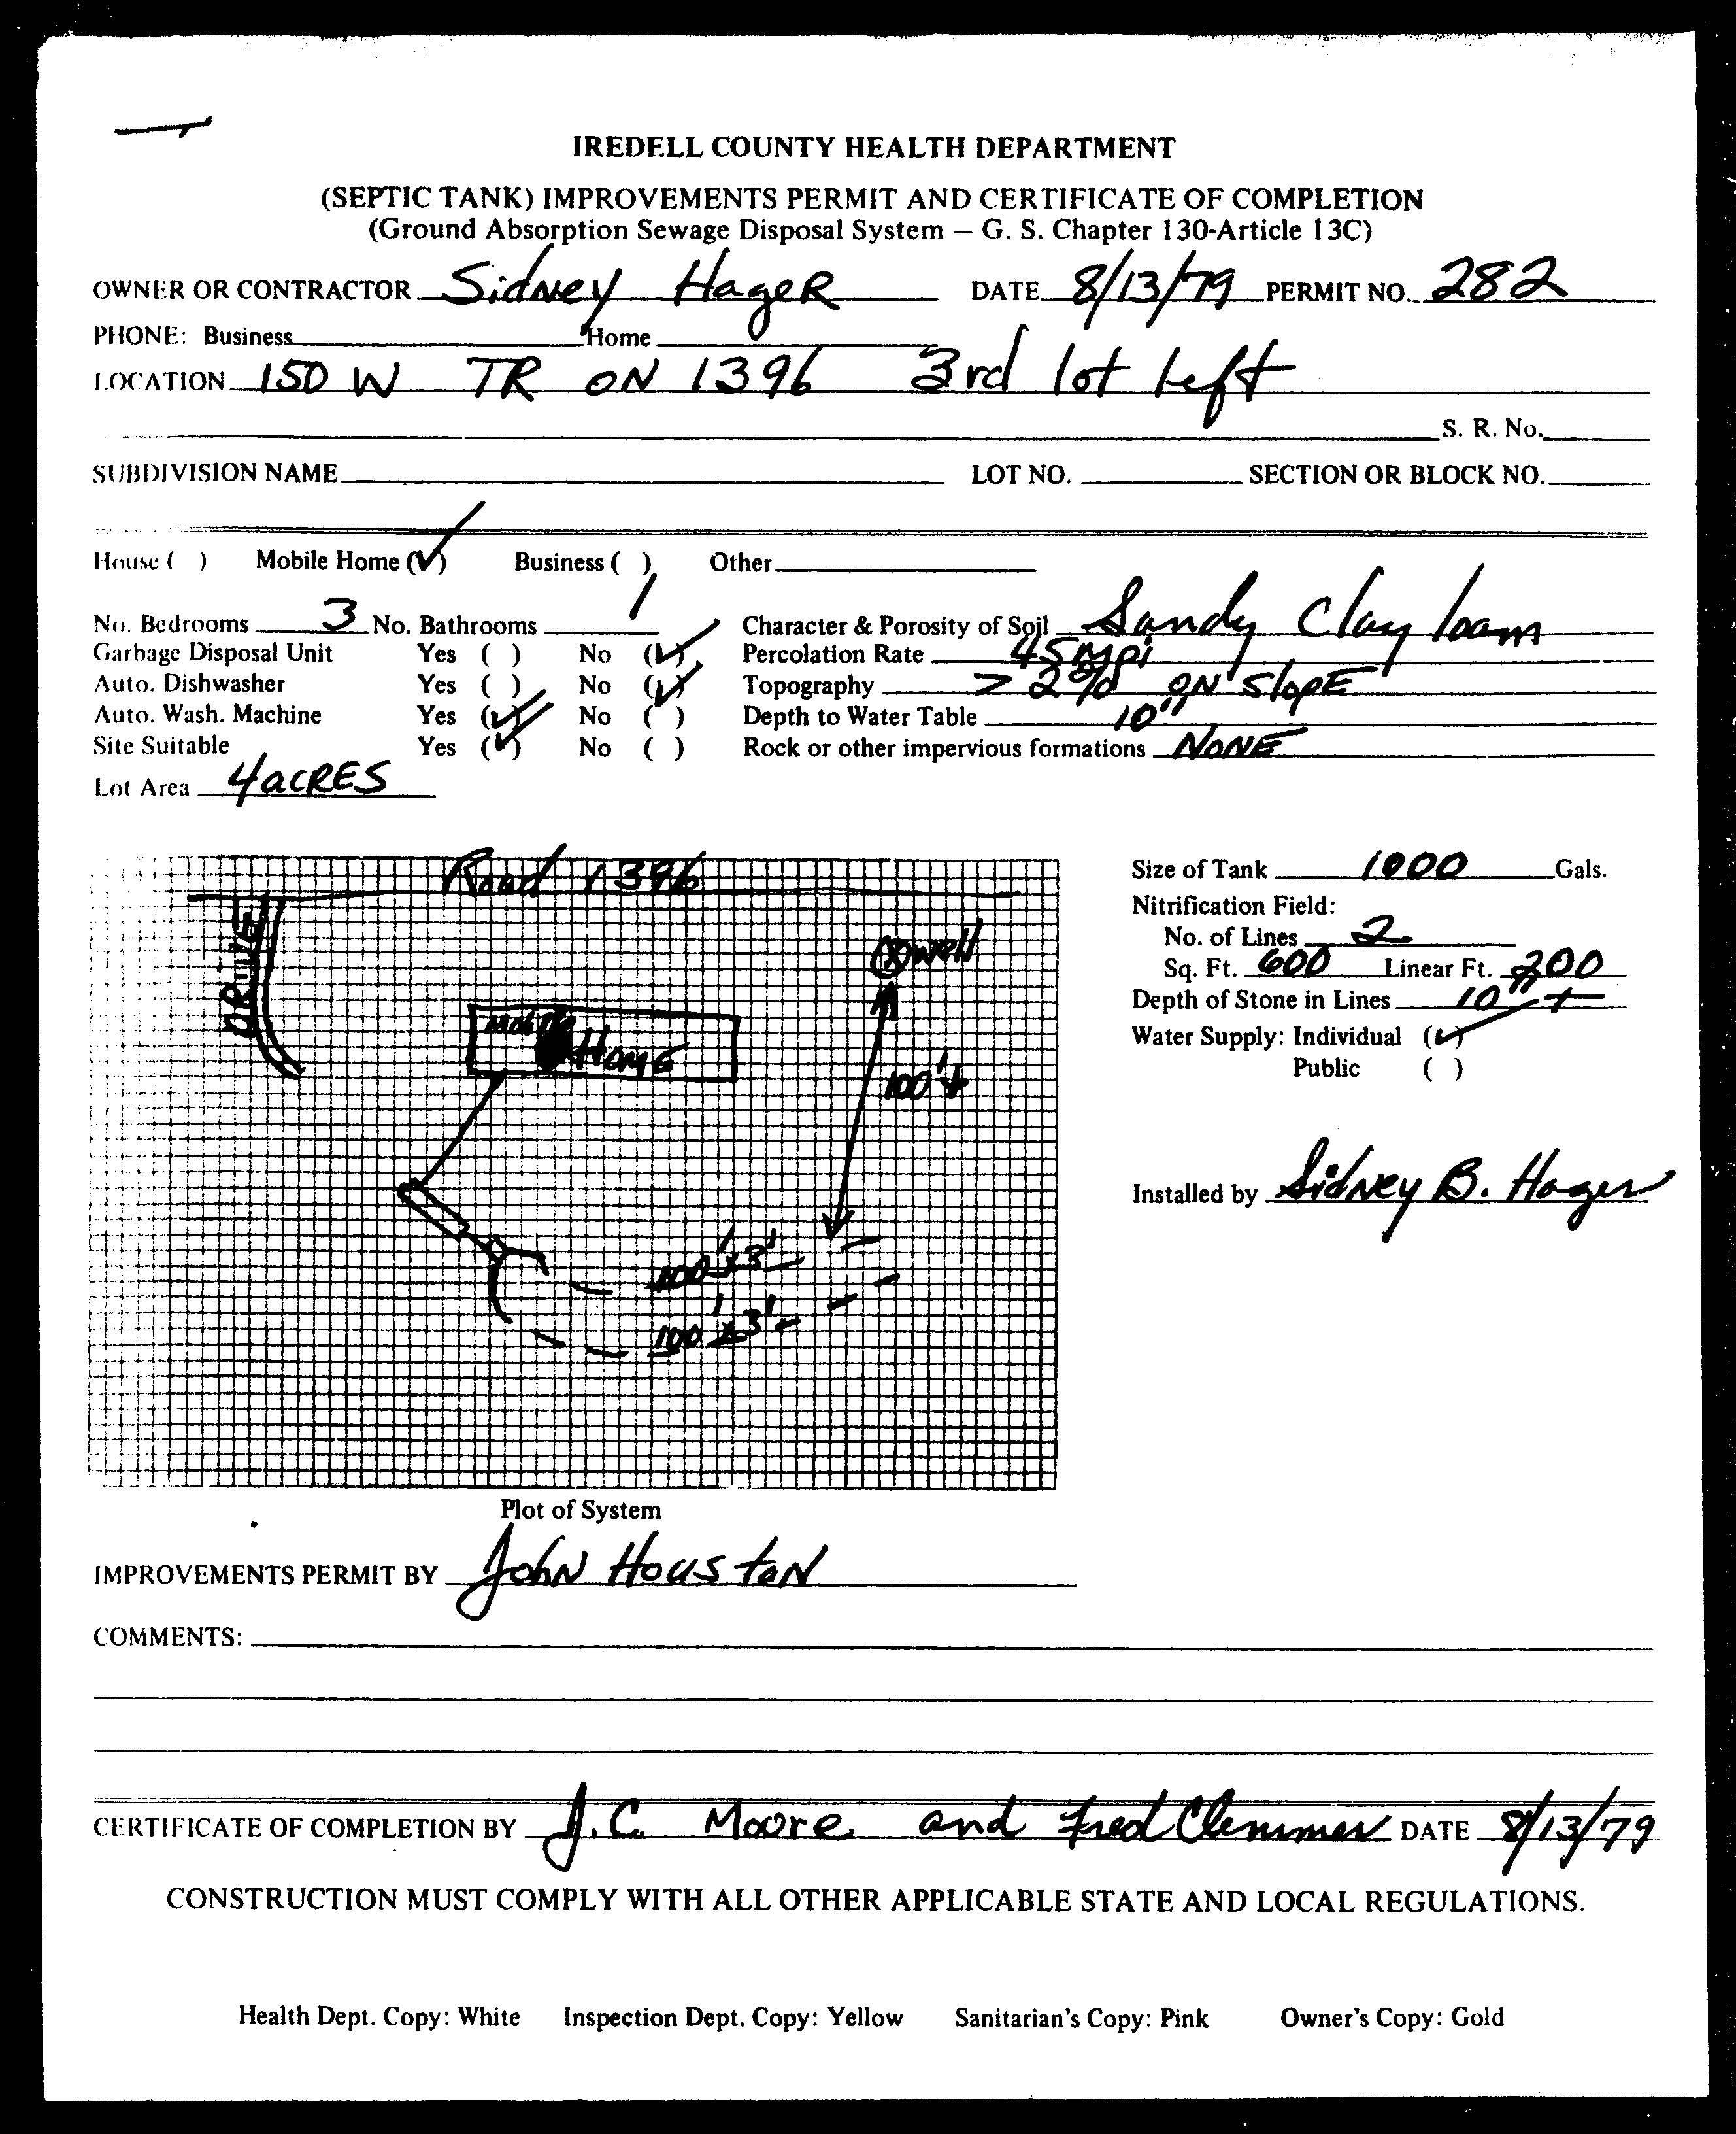 IREDELL COUNTY HEALTH DEPARTMENT
(SEPTIC TANK) IMPROVEMENTS PERMIT AND CERTIFICATE OF COMPLETION
(Ground Absorption Sewage Disposal System — G. S. Chapter 130-Article 13C)
OWNER OR CONTRACTOR Sidney Hager DATE 8/13/79 PERMIT NO. 282
PHONE: Business Home
LOCATION 150 W TR ON 1396 3rd lot left
S. R. No.
SUBDIVISION NAME LOT NO. SECTION OR BLOCK NO.
House ( ) Mobile Home (✓) Business ( ) Other
No. Bedrooms 3 No. Bathrooms 1 Character & Porosity of Soil Sandy Clay loam
Garbage Disposal Unit Yes ( ) No (✓) Percolation Rate 45 mpi
Auto. Dishwasher Yes ( ) No (✓) Topography > 2% ON SlopE
Auto. Wash. Machine Yes (✓) No ( ) Depth to Water Table 10''
Site Suitable Yes (✓) No ( ) Rock or other impervious formations NONE
Lot Area 4 acRES
Road 1396
DRIVE
well
MobilE
HomE
100'+
100' x 3'
100' x 3'
Size of Tank 1000 Gals.
Nitrification Field:
No. of Lines 2
Sq. Ft. 600 Linear Ft. 200
Depth of Stone in Lines 10" +
Water Supply: Individual (✓)
Public ( )
Installed by Sidney B. Hager
Plot of System
IMPROVEMENTS PERMIT BY John Houston
COMMENTS:
CERTIFICATE OF COMPLETION BY J.C. Moore and Fred Clemmer DATE 8/13/79
CONSTRUCTION MUST COMPLY WITH ALL OTHER APPLICABLE STATE AND LOCAL REGULATIONS.
Health Dept. Copy: White Inspection Dept. Copy: Yellow Sanitarian's Copy: Pink Owner's Copy: Gold